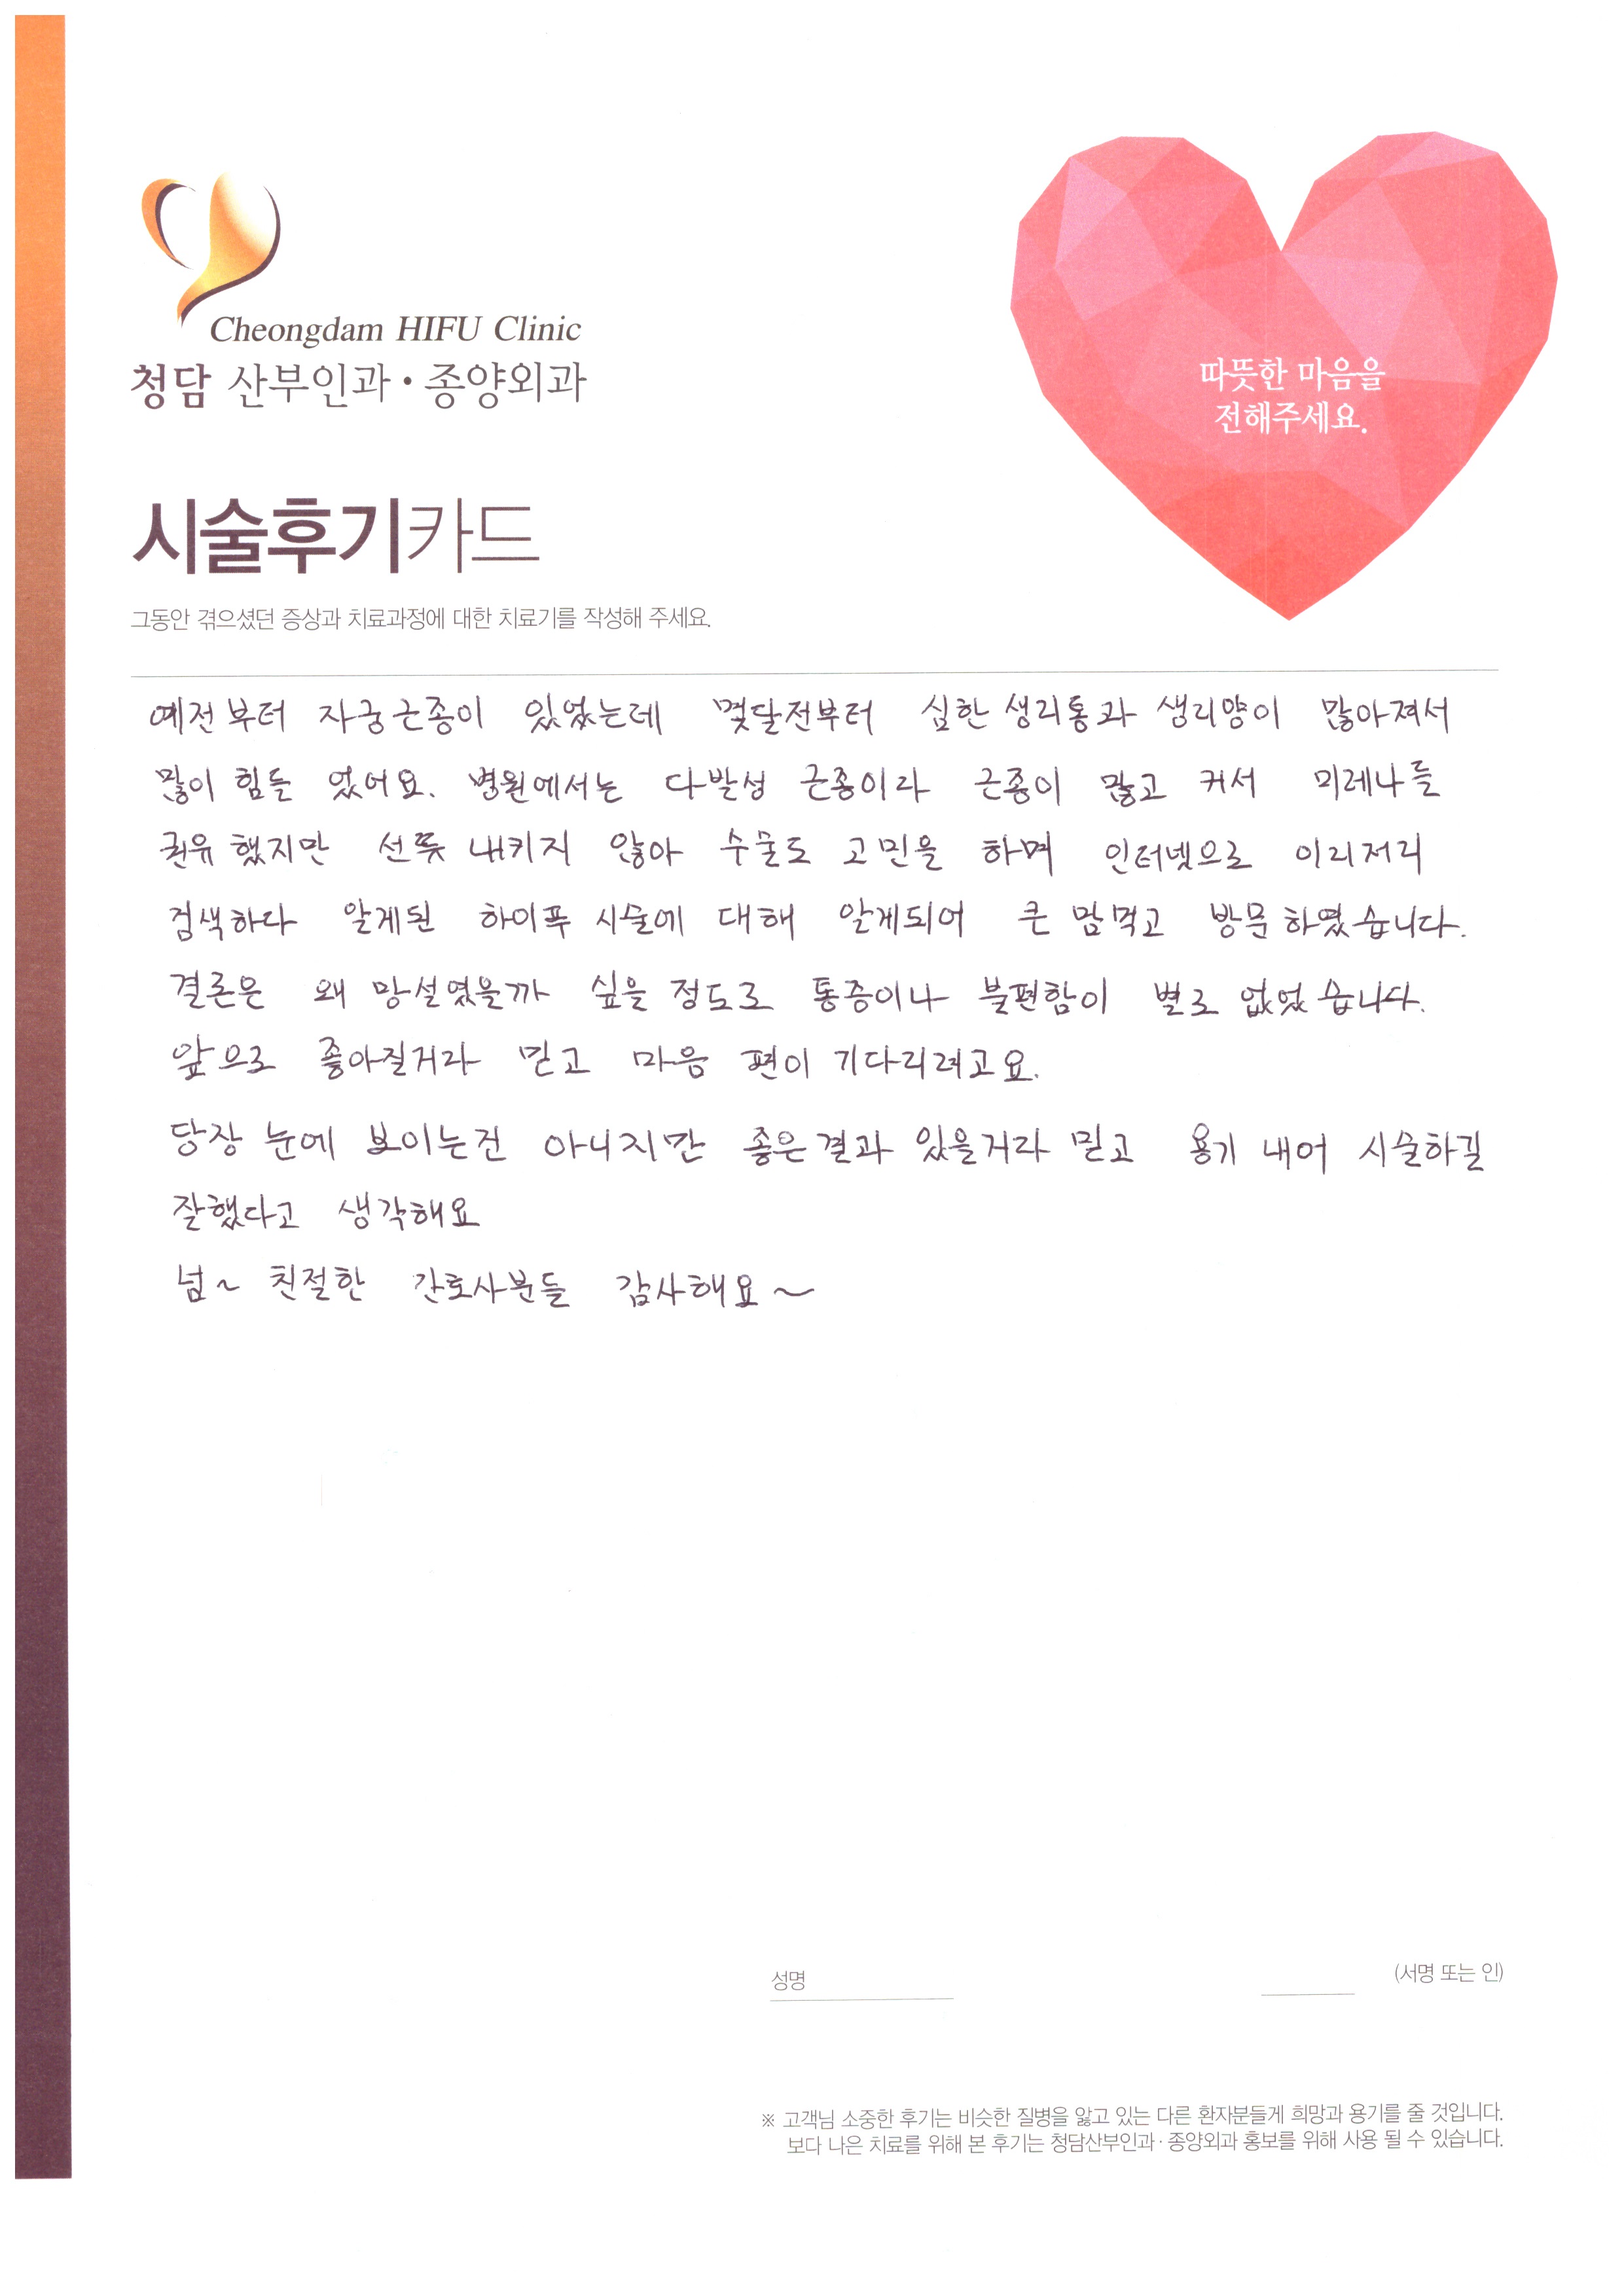 Cheongdam HIFU Clinic
청담 산부인과·종양외과
따뜻한 마음을
전해주세요.
시술후기카드
그동안 겪으셨던 증상과 치료과정에 대한 치료기를 작성해 주세요.
예전부터 자궁근종이 있었는데 몇달전부터 심한 생리통과 생리양이 많아져서
많이 힘들 었어요. 병원에서는 다발성 근종이라 근종이 많고 커서 미레나를
권유 했지만 선뜻 내키지 않아 수술도 고민을 하며 인터넷으로 이리저리
검색하다 알게된 하이푸 시술에 대해 알게되어 큰 맘먹고 방문 하였습니다.
결론은 왜 망설였을까 싶을 정도로 통증이나 불편함이 별로 없었습니다.
앞으로 좋아질거라 믿고 마음 편이 기다리려고요.
당장 눈에 보이는건 아니지만 좋은 결과 있을거라 믿고 용기 내어 시술하길
잘했다고 생각해요
넘~ 친절한 간호사분들 감사해요~
성명 (서명 또는 인)
※ 고객님 소중한 후기는 비슷한 질병을 앓고 있는 다른 환자분들게 희망과 용기를 줄 것입니다.
보다 나은 치료를 위해 본 후기는 청담산부인과·종양외과 홍보를 위해 사용 될 수 있습니다.